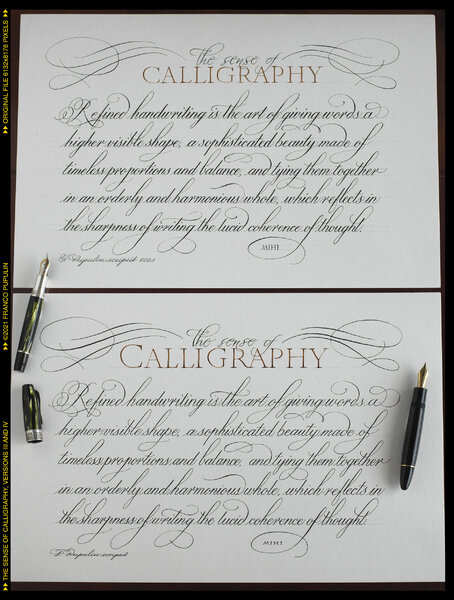 the sense of
CALLIGRAPHY
Refined handwriting is the art of giving words a
higher visible shape, a sophisticated beauty made of
timeless proportions and balance, and tying them together
in an orderly and harmonious whole, which reflects in
the sharpness of writing the lucid coherence of thought.
MIHI
F. Pupulin scripsit 2021
the sense of
CALLIGRAPHY
Refined handwriting is the art of giving words a
higher visible shape, a sophisticated beauty made of
timeless proportions and balance, and tying them together
in an orderly and harmonious whole, which reflects in
the sharpness of writing the lucid coherence of thought.
MIHI
F. Pupulin scripsit
▶▶ THE SENSE OF CALLIGRAPHY, VERSIONS III AND IV
▶▶ ©2021 FRANCO PUPULIN
▶▶ ORIGINAL FILE 6132x8176 PIXELS